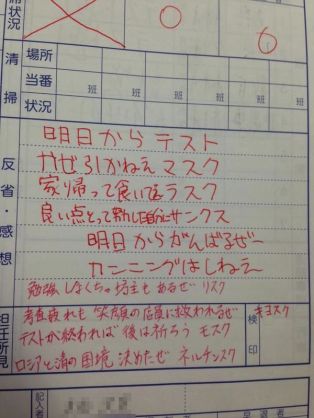 席状況
0 6
清掃
場所
当番 班 班 班 班
状況
反省・感想
明日から テスト
かぜ引かねえ マスク
家帰って食いてえ ラスク
良い点とって自分にサンクス
明日からがんばるぜー
カンニングはしねえ
勉強しなくちゃ 坊主もあるぜ リスク
担任所見
考査疲れも 笑顔の店員に救われるぜ キヨスク
テストが終われば 後は祈ろう モスク
ロシアと清の国境 決めたぜ ネルチンスク
検印
記入者
早退者